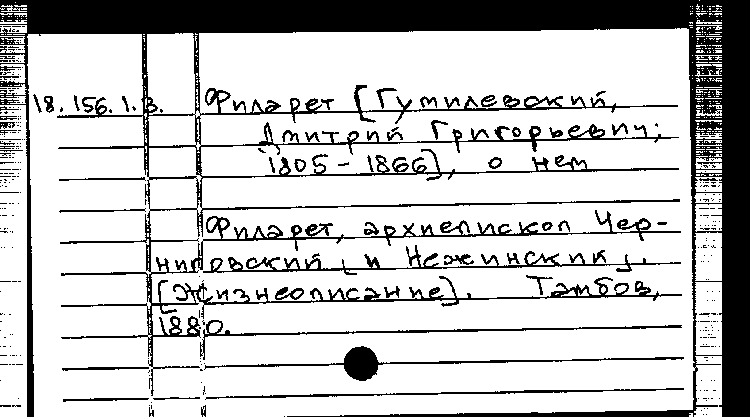 18.156.1.3. Филарет [Гумилевский,
Дмитрий Григорьевич;
1805 - 1866], о нем
Филарет, архиепископ Чер-
ниговский [и Нежинский].
[Жизнеописание]. Тамбов,
1880.